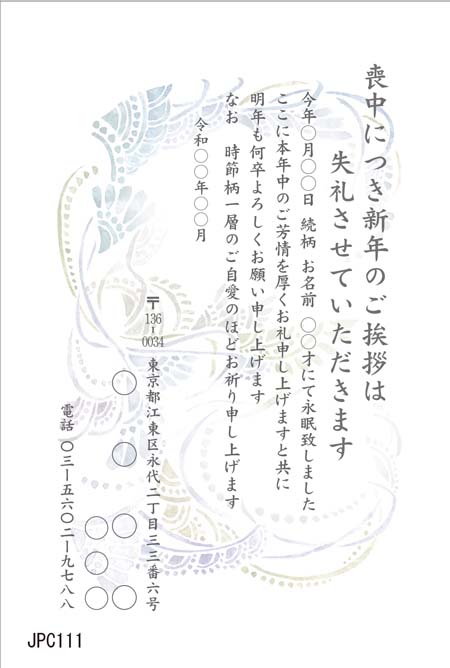 喪中につき新年のご挨拶は
失礼させていただきます
今年〇月〇〇日 続柄 お名前 〇〇才にて永眠致しました
ここに本年中のご芳情を厚くお礼申し上げますと共に
明年も何卒よろしくお願い申し上げます
なお 時節柄一層のご自愛のほどお祈り申し上げます
令和〇〇年〇〇月
〒136-0034 東京都江東区永代二丁目三三番六号
〇 〇 〇〇
〇〇〇
電話 〇三ー五六〇二ー九七八八
JPC111